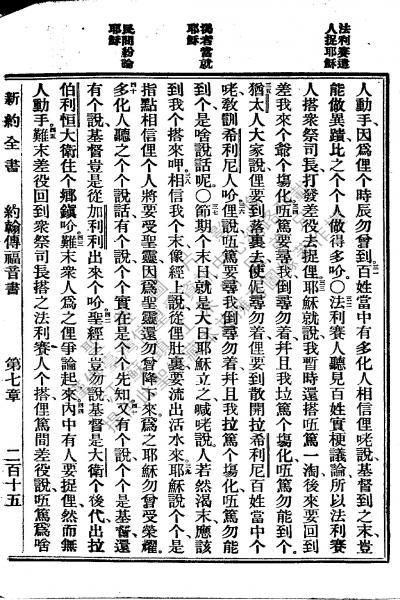 法利賽遣
人捉耶穌
渴者當就
耶穌
民間紛論
耶穌
人動手、因爲俚個時辰勿曾到。三一百姓當中有多化人相信俚咾說基督到之末、豈
能做異蹟比之个个人做得多吟〇三二法利賽人聽見百姓實梗議論所以法利賽
人搭衆祭司長打發差役去捉俚三三耶穌就說我暫時還搭㕶篤一淘後來要回到
差我來个爺个塲化三四㕶篤要尋我倒尋勿着幷且我垃篤个塲化㕶篤勿能到个。
三五猶太人大家說俚要到落裏去使伲尋勿着俚要到散開拉希利尼百姓當中个
咾敎訓希利尼人吟三六俚說㕶篤要尋我倒尋勿着幷且我拉篤个塲化㕶篤勿能
到个是啥說話呢〇三七節期个末日就是大日耶穌立之喊咾說人若然渴末應該
到我个搭來呷三八相信我个末像經上說從俚肚裏要流出活水來三九耶穌說个个是
指點相信俚个人將要受聖靈因爲聖靈還勿曾降下來爲之耶穌勿曾受榮耀。
四十多化人聽之个个說話有个說个个實在是个个先知四一又有个說个个是基督還
有个說基督豈是從加利利出來个吟四二聖經上豈勿說基督是大衛个後代出拉
伯利恒大衛住个鄉鎮吟四三難末衆人爲之俚爭論起來四四內中有人要捉俚然而無
人動手四五難末差役回到衆祭司長搭之法利賽人个搭俚篤問差役說㕶篤爲啥
新約全書 約翰傳福音書 第七章 二百十五